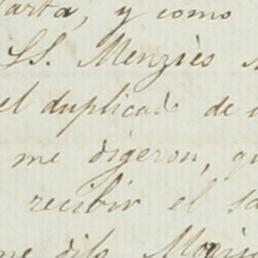 arta, y como
SS. Menziès
el duplicado de
me digeron,
recibir el
me dijo